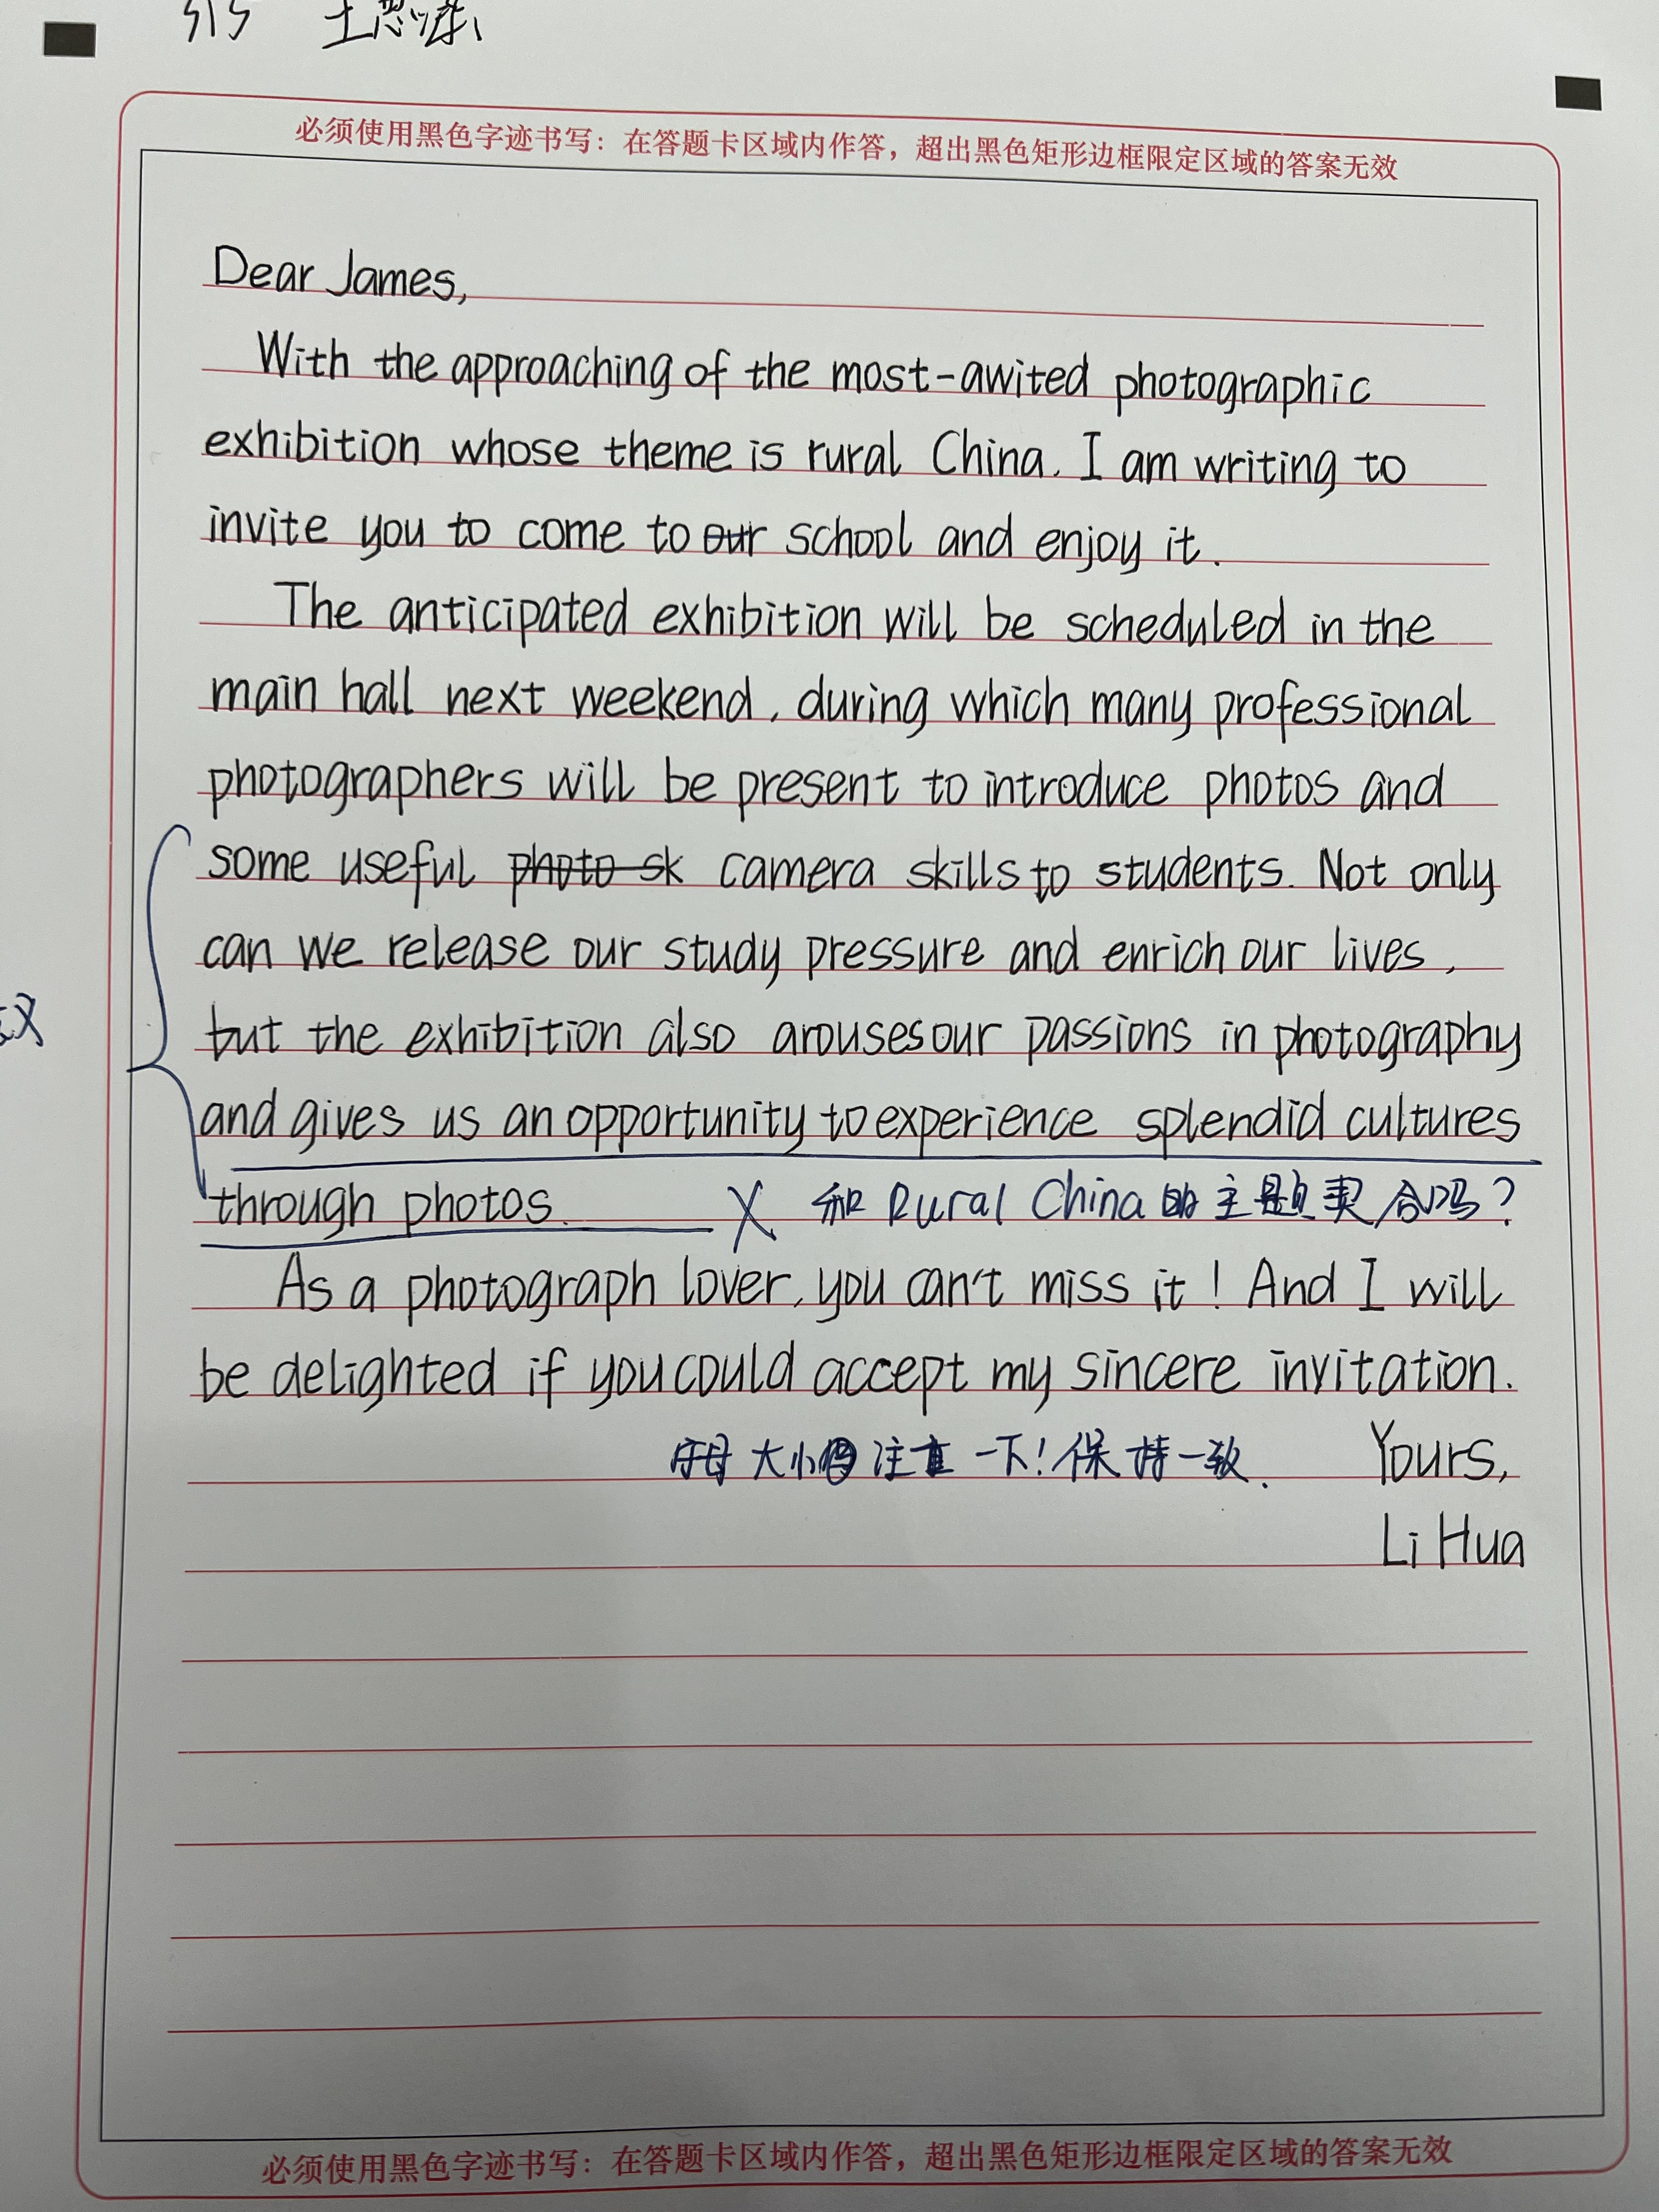 515
必须使用黑色字迹书写：在答题卡区域内作答，超出黑色矩形边框限定区域的答案无效
Dear James,
With the approaching of the most-awited photographic
exhibition whose theme is rural China. I am writing to
invite you to come to our school and enjoy it.
The anticipated exhibition will be scheduled in the
main hall next weekend, during which many professional
photographers will be present to introduce photos and
some useful photo sk camera skills to students. Not only
can we release our study pressure and enrich our lives,
but the exhibition also arouses our passions in photography
and gives us an opportunity to experience splendid cultures
through photos. X 和 Rural China 的主题契合吗？
As a photograph lover, you can't miss it! And I will
be delighted if you could accept my sincere invitation.
字母大小得注意一下！保持一致.
Yours,
Li Hua
必须使用黑色字迹书写：在答题卡区域内作答，超出黑色矩形边框限定区域的答案无效